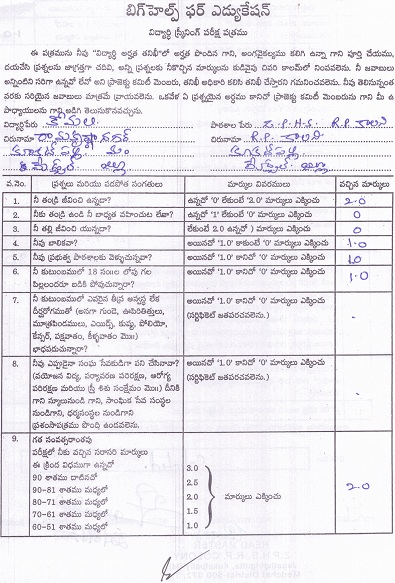 బిగ్‌హెల్ప్ ఫర్ ఎడ్యుకేషన్
విద్యార్థి స్క్రీనింగ్ పరీక్ష పత్రము
ఈ పత్రమును నీవు "విద్యార్థి అర్హత తనిఖీ"లో అర్హత పొందిన గాని, అంగవైకల్యము కలిగి ఉన్నా గాని పూర్తి చేయుము,
దయచేసి ప్రశ్నలను జాగ్రత్తగా చదివి, అన్ని ప్రశ్నలకు నీకొచ్చిన మార్కులను కుడివైపు చివరి కాలమ్‌లో నింపవలెను. నీ జవాబులు
అన్నింటిని సరిగా ఉన్నవో లేవో అని ప్రాజెక్టు కమిటీ మెంబరు, తనిఖీ అధికారి కలిసి తనిఖీ చేస్తారని గమనించవలెను. నీవు తెలిసినంత
వరకు సరియైన జవాబులు మాత్రమే వ్రాయవలెను. ఒకవేళ ఏ ప్రశ్నయైన అర్థము కానిచో ప్రాజెక్టు కమిటీ మెంబరును గాని మీ ఉ
పాధ్యాయులను గాన్ని అడిగి తెలుసుకొనవచ్చును.
విద్యార్థిపేరు కోమల పాఠశాల పేరు Z.P.H.S. R.P. కాలని
చిరునామా రామకృష్ణా నగర్ చిరునామా R.P. కాలని
జిల్లా జిల్లా
వ.నెం. ప్రశ్నలు మరియు పదపోత సంగతులు మార్కుల వివరములు వచ్చిన మార్కులు
1. నీ తండ్రి జీవించి ఉన్నడా? ఉన్నచో '0' లేకుంటే '2.0' మార్కులు ఎక్కించు 2.0
2. నీకు తండ్రి ఉండి నీ బాధ్యత వహించుట లేదా? ఉన్నచో '1' లేకుంటే '0' మార్కులు ఎక్కించు 0
3. నీ తల్లి జీవించి యున్నదా? లేకుంటే 2.0 ఉన్నచో ) మార్కులు ఎక్కించు 0
4. నీవు బాలికవా? అయినచో '1.0' కాకుంటే '0' మార్కులు ఎక్కించు 1.0
5. నీవు ప్రభుత్వ పాఠశాలకు వెళ్ళుచున్నవా? అయినచో '1.0' కానిచో '0' మార్కులు ఎక్కించు 1.0
6. నీ కుటుంబములో 18 సం॥ల లోపు గల
పిల్లలందరూ బడికి పోవుచున్నారా? అయినచో '1.0' కానిచో '0' మార్కులు ఎక్కించు 1.0
7. నీ కుటుంబములో ఎవరైన తీవ్ర అస్వస్థ లేక
దీర్ఘరోగముతో (అనగా గుండె, ఊపిరితిత్తులు,
మూత్రపిండములు, ఎయిడ్స్, కుష్ఠు, పోలియో,
కేన్సర్, పక్షవాతం, కీళ్ళవాతం మొ॥)
బాధపడుచున్నారా? అయినచో '1.0' కానిచో '0' మార్కులు ఎక్కించు
(సర్టిఫికెట్ జతపరచవలెను.)
8. నీవు ఎప్పుడైనా సంఘ సేవకుడిగా పని చేసినావా?
(వయోజన విద్య, పర్యావరణ పరిరక్షణ, ఆరోగ్య
పరిరక్షణ మరియు స్త్రీ శిశు సంక్షేమం మొ॥) దీనికి
గాని స్కూలునుండి గాని, సాంఘిక సేవ సంస్థల
నుండిగాని, ధర్మసంస్థల నుండిగాని
ప్రశంసాపత్రము పొంది ఉండవలెను. అయినచో '1.0' కానిచో '0' మార్కులు ఎక్కించు
(సర్టిఫికెట్ జతపరచవలెను.)
9. గత సంవత్సరాంతపు
పరీక్షలో నీకు వచ్చిన సరాసరి మార్కులు
ఈ క్రింద విధముగా ఉన్నదో
90 శాతము దాటినచో 3.0
90-81 శాతము మధ్యలో 2.5
80-71 శాతము మధ్యలో 2.0 మార్కులు ఎక్కించు 2.0
70-61 శాతము మధ్యలో 1.5
60-51 శాతము మధ్యలో 1.0